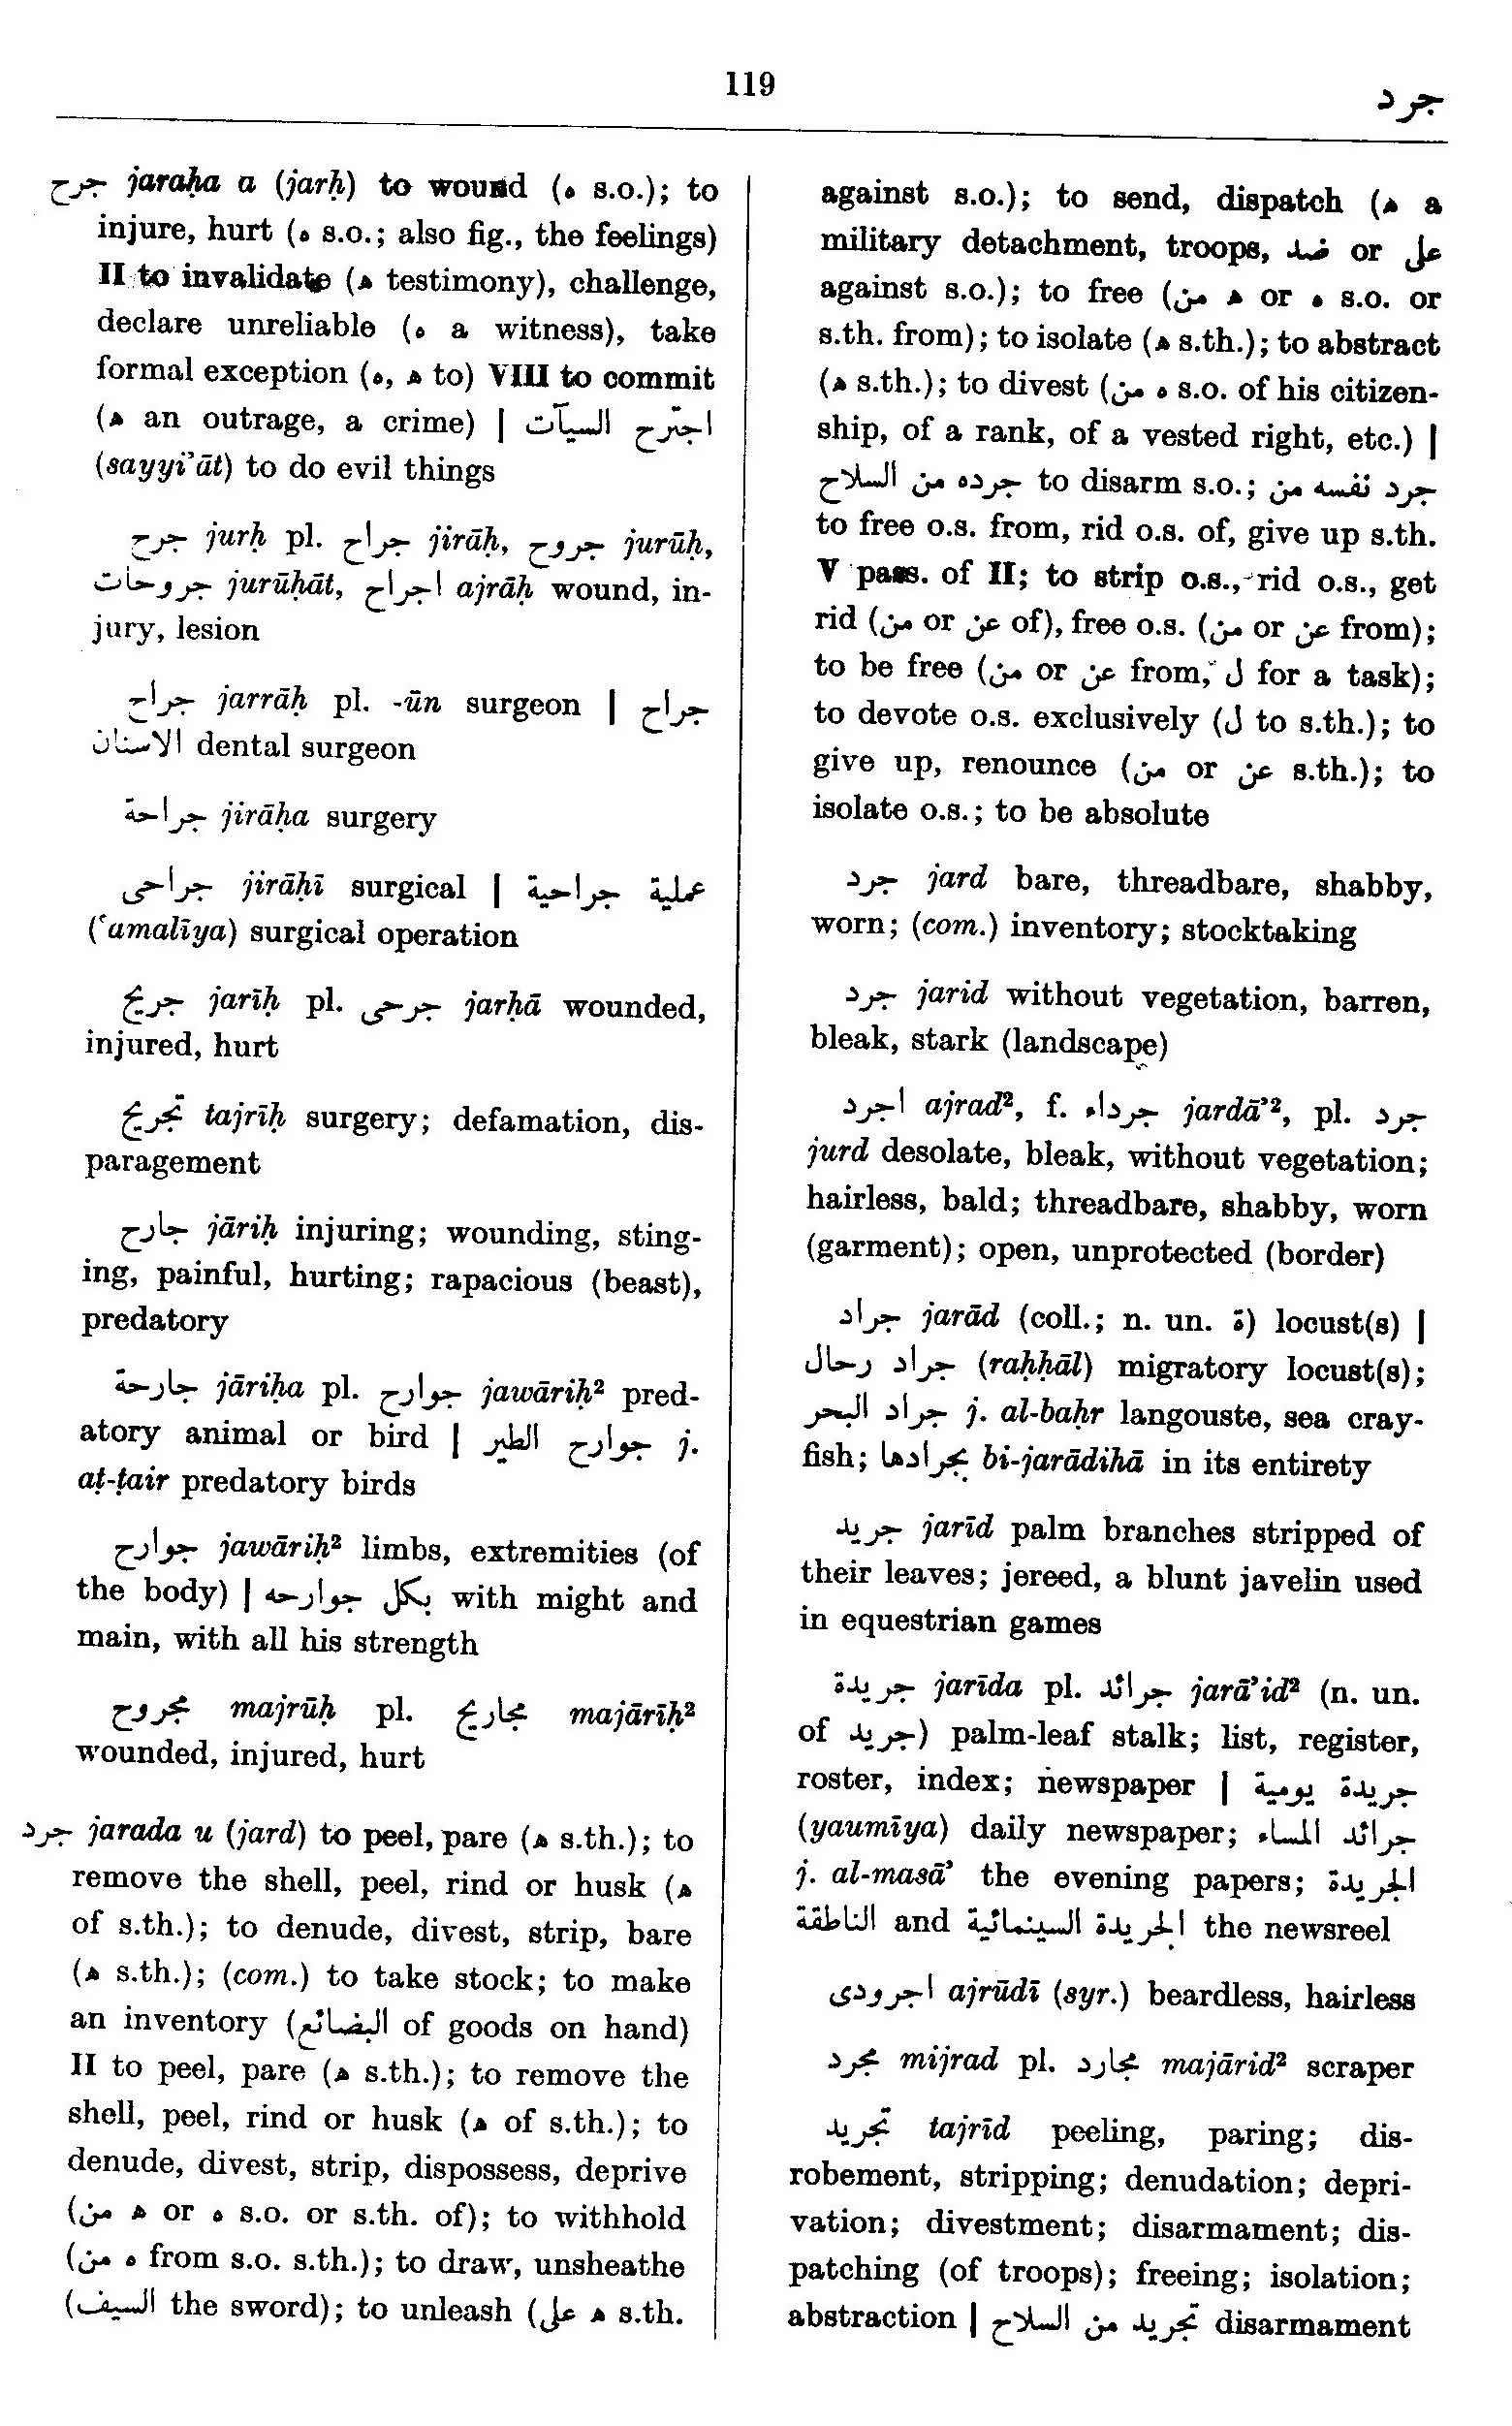 119
جرد
جرح jaraḥa a (jarḥ) to wound (ه s.o.); to
injure, hurt (ه s.o.; also fig., the feelings)
II to invalidate (ﻫ testimony), challenge,
declare unreliable (ه a witness), take
formal exception (ه, ﻫ to) VIII to commit
(ﻫ an outrage, a crime) | اجترح السيآت
(sayyi’āt) to do evil things
جرح jurḥ pl. جراح jirāḥ, جروح jurūḥ,
جروحات jurūḥāt, اجراح ajrāḥ wound, in-
jury, lesion
جراح jarrāḥ pl. -ūn surgeon | جراح
الاسنان dental surgeon
جراحة jirāḥa surgery
جراحى jirāḥī surgical | عملية جراحية
(‘amalīya) surgical operation
جريح jarīḥ pl. جرحى jarḥā wounded,
injured, hurt
تجريح tajrīḥ surgery; defamation, dis-
paragement
جارح jāriḥ injuring; wounding, sting-
ing, painful, hurting; rapacious (beast),
predatory
جارحة jāriḥa pl. جوارح jawāriḥ² pred-
atory animal or bird | جوارح الطير j.
aṭ-ṭair predatory birds
جوارح jawāriḥ² limbs, extremities (of
the body) | بكل جوارحه with might and
main, with all his strength
مجروح majrūḥ pl. مجاريح majārīḥ²
wounded, injured, hurt
جرد jarada u (jard) to peel, pare (ﻫ s.th.); to
remove the shell, peel, rind or husk (ﻫ
of s.th.); to denude, divest, strip, bare
(ﻫ s.th.); (com.) to take stock; to make
an inventory (البضائع of goods on hand)
II to peel, pare (ﻫ s.th.); to remove the
shell, peel, rind or husk (ﻫ of s.th.); to
denude, divest, strip, dispossess, deprive
(من ﻫ or ه s.o. or s.th. of); to withhold
(من ه from s.o. s.th.); to draw, unsheathe
(السيف the sword); to unleash (على ﻫ s.th.
against s.o.); to send, dispatch (ﻫ a
military detachment, troops, ضد or على
against s.o.); to free (من ﻫ or ه s.o. or
s.th. from); to isolate (ﻫ s.th.); to abstract
(ﻫ s.th.); to divest (من ه s.o. of his citizen-
ship, of a rank, of a vested right, etc.) |
جرده من السلاح to disarm s.o.; جرد نفسه من
to free o.s. from, rid o.s. of, give up s.th.
V pass. of II; to strip o.s., rid o.s., get
rid (من or عن of), free o.s. (من or عن from);
to be free (من or عن from, ل for a task);
to devote o.s. exclusively (ل to s.th.); to
give up, renounce (من or عن s.th.); to
isolate o.s.; to be absolute
جرد jard bare, threadbare, shabby,
worn; (com.) inventory; stocktaking
جرد jarid without vegetation, barren,
bleak, stark (landscape)
اجرد ajrad², f. جرداء jardā’², pl. جرد
jurd desolate, bleak, without vegetation;
hairless, bald; threadbare, shabby, worn
(garment); open, unprotected (border)
جراد jarād (coll.; n. un. ة) locust(s) |
جراد رحال (raḥḥāl) migratory locust(s);
جراد البحر j. al-baḥr langouste, sea cray-
fish; بجرادها bi-jarādihā in its entirety
جريد jarīd palm branches stripped of
their leaves; jereed, a blunt javelin used
in equestrian games
جريدة jarīda pl. جرائد jarā’id² (n. un.
of جريد) palm-leaf stalk; list, register,
roster, index; newspaper | جريدة يومية
(yaumīya) daily newspaper; جرائد المساء
j. al-masā’ the evening papers; الجريدة
الناطقة and الجريدة السينمائية the newsreel
اجرودى ajrūdī (syr.) beardless, hairless
مجرد mijrad pl. مجارد majārid² scraper
تجريد tajrīd peeling, paring; dis-
robement, stripping; denudation; depri-
vation; divestment; disarmament; dis-
patching (of troops); freeing; isolation;
abstraction | تجريد من السلاح disarmament